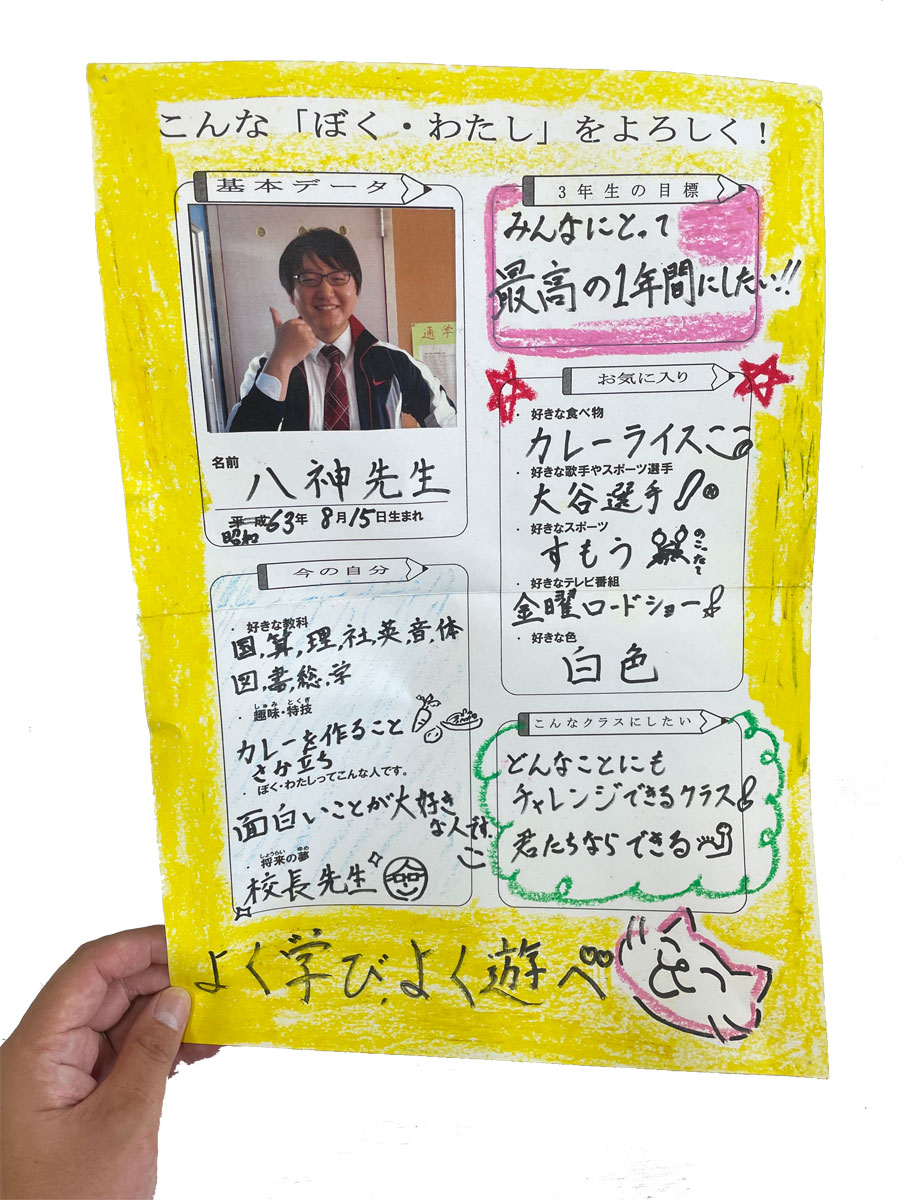 こんな「ぼく・わたし」をよろしく！
基本データ
通学
名前
八神先生
平成63年 8月15日生まれ
昭和
3年生の目標
みんなにとって
最高の1年間にしたい!!
お気に入り
・好きな食べ物
カレーライス
・好きな歌手やスポーツ選手
大谷選手
・好きなスポーツ
すもう
のこった
・好きなテレビ番組
金曜ロードショー
・好きな色
白色
今の自分
・好きな教科
国,算,理,社,英,音,体
図,書,総,学
しゅみ とくぎ
・趣味・特技
カレーを作ること
さか立ち
・ぼく・わたしってこんな人です。
面白いことが大好き
な人です。
しょうらい ゆめ
・将来の夢
校長先生
こんなクラスにしたい
どんなことにも
チャレンジできるクラス
君たちならできる
よく学び,よく遊べ